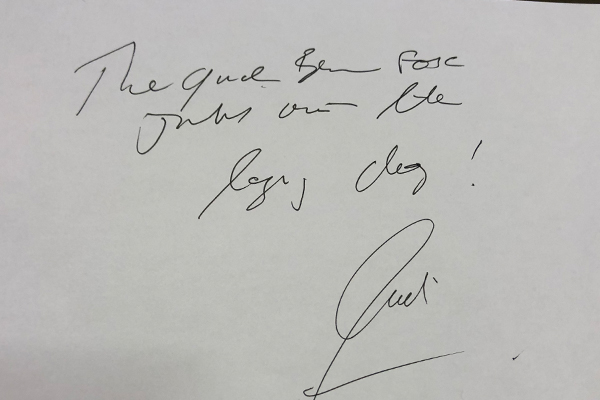 The quck Brn Fox
Jumps over the
lazy dog!